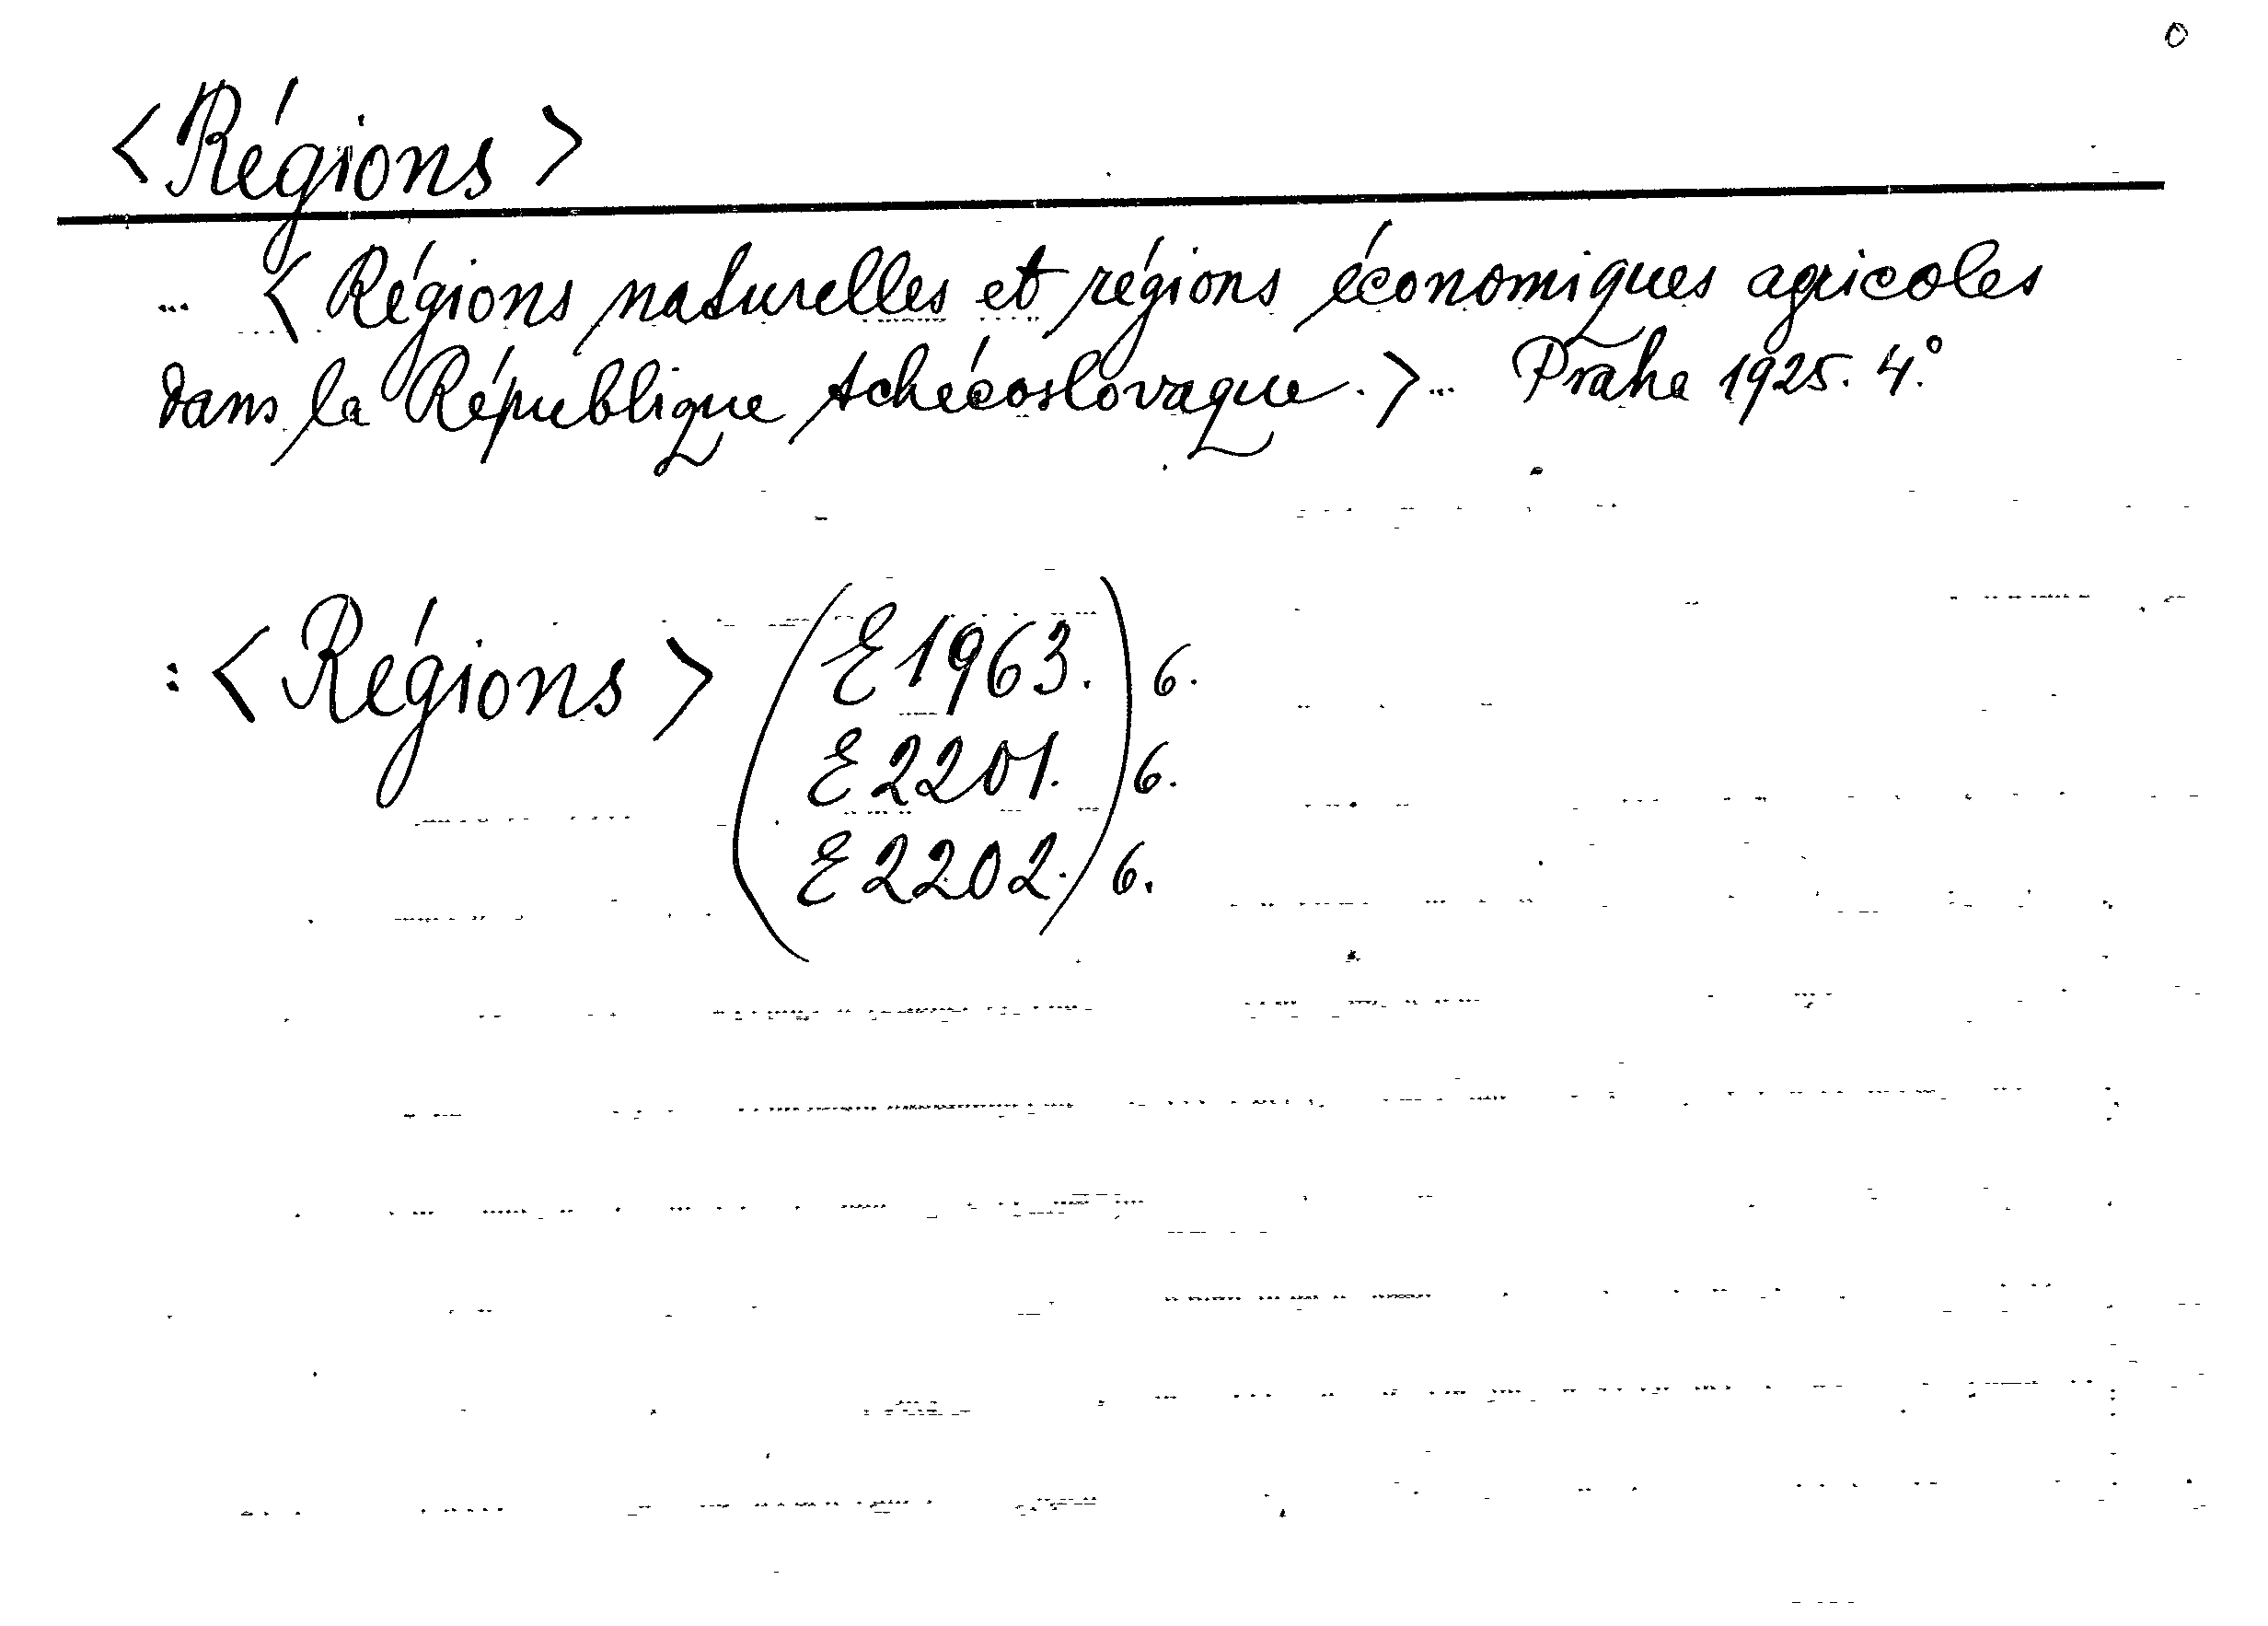 0
<Régions>
... <Régions naturelles et régions économiques agricoles
dans la République tchécoslovaque.>... Praha 1925. 4.°
: <Régions> (E 1963.) 6.
E 2201. 6.
E 2202. 6.